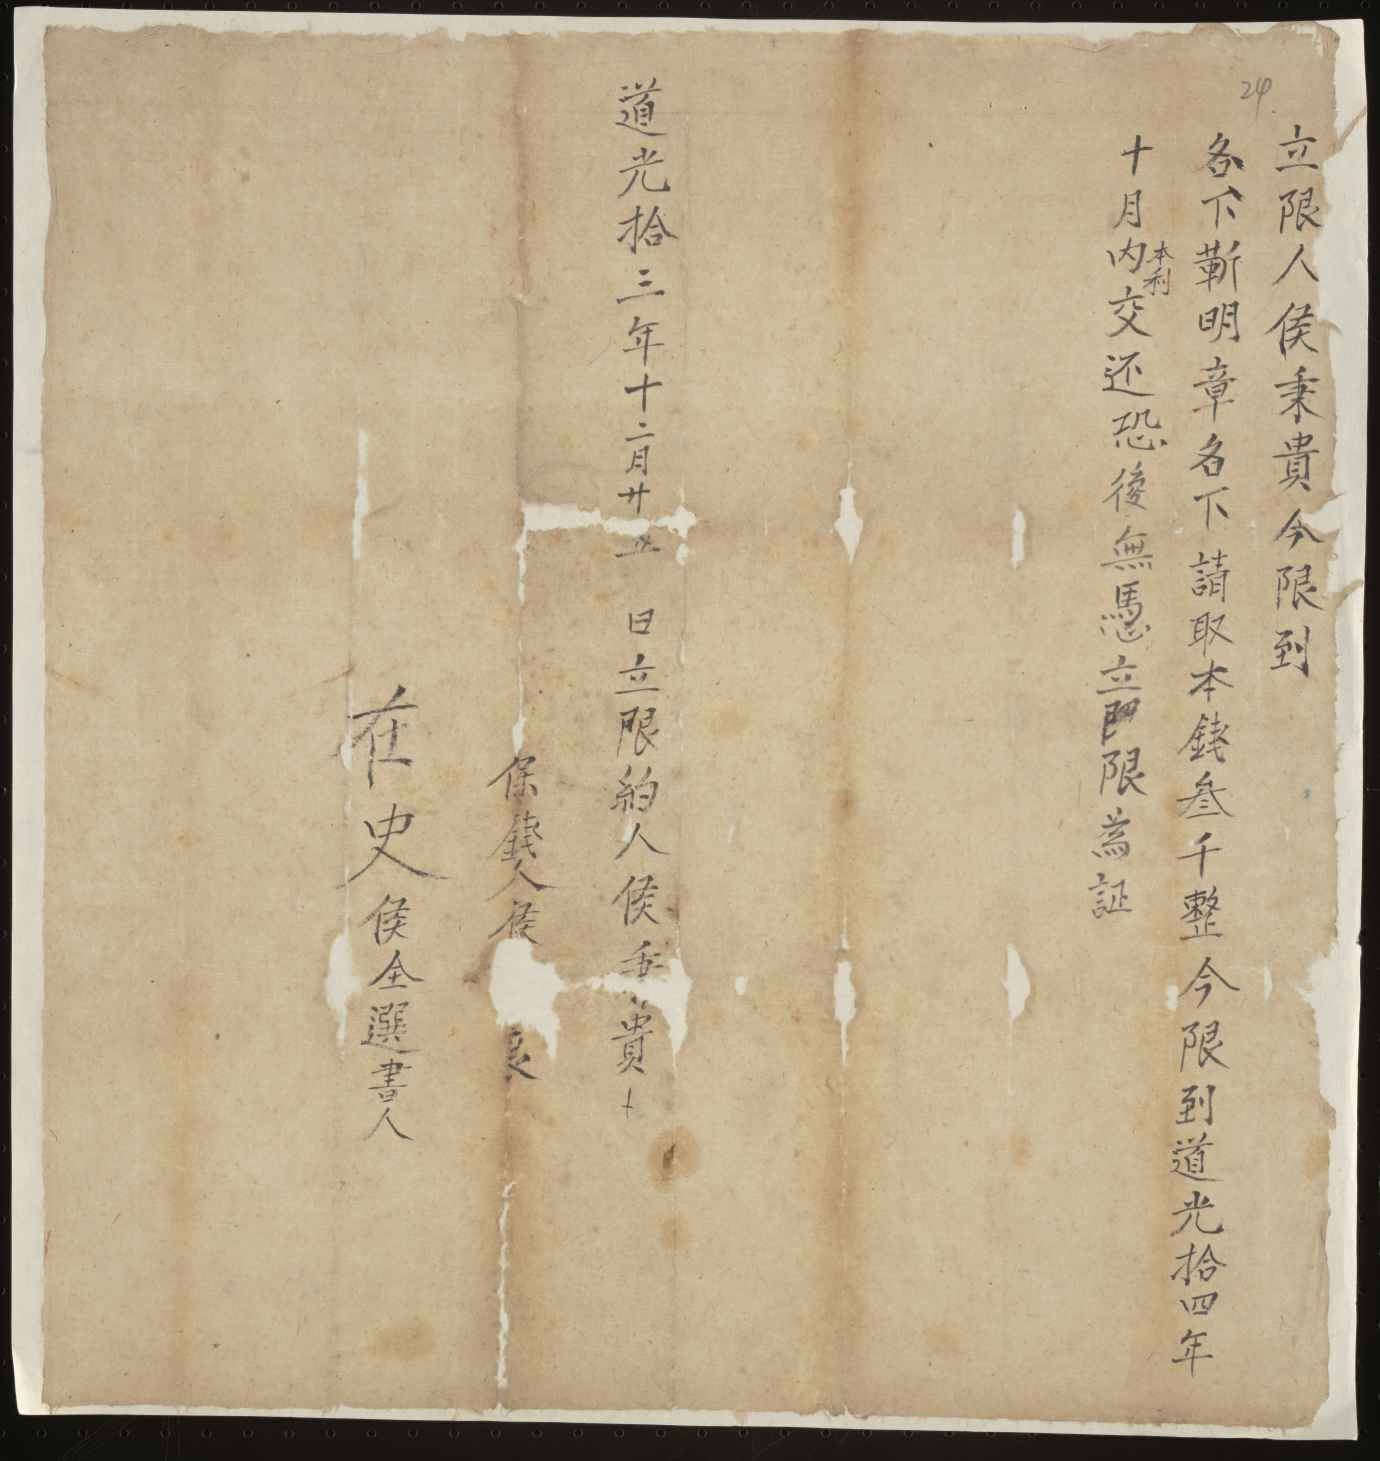 24
立限人侯秉貴今限到
各下靳明章名下請取本錢叁千整今限到道光拾四年
十月内本利交还恐後無憑立限為証
道光拾三年十二月廿五日立限約人侯秉貴十
保錢人侯
在史侯全選書人